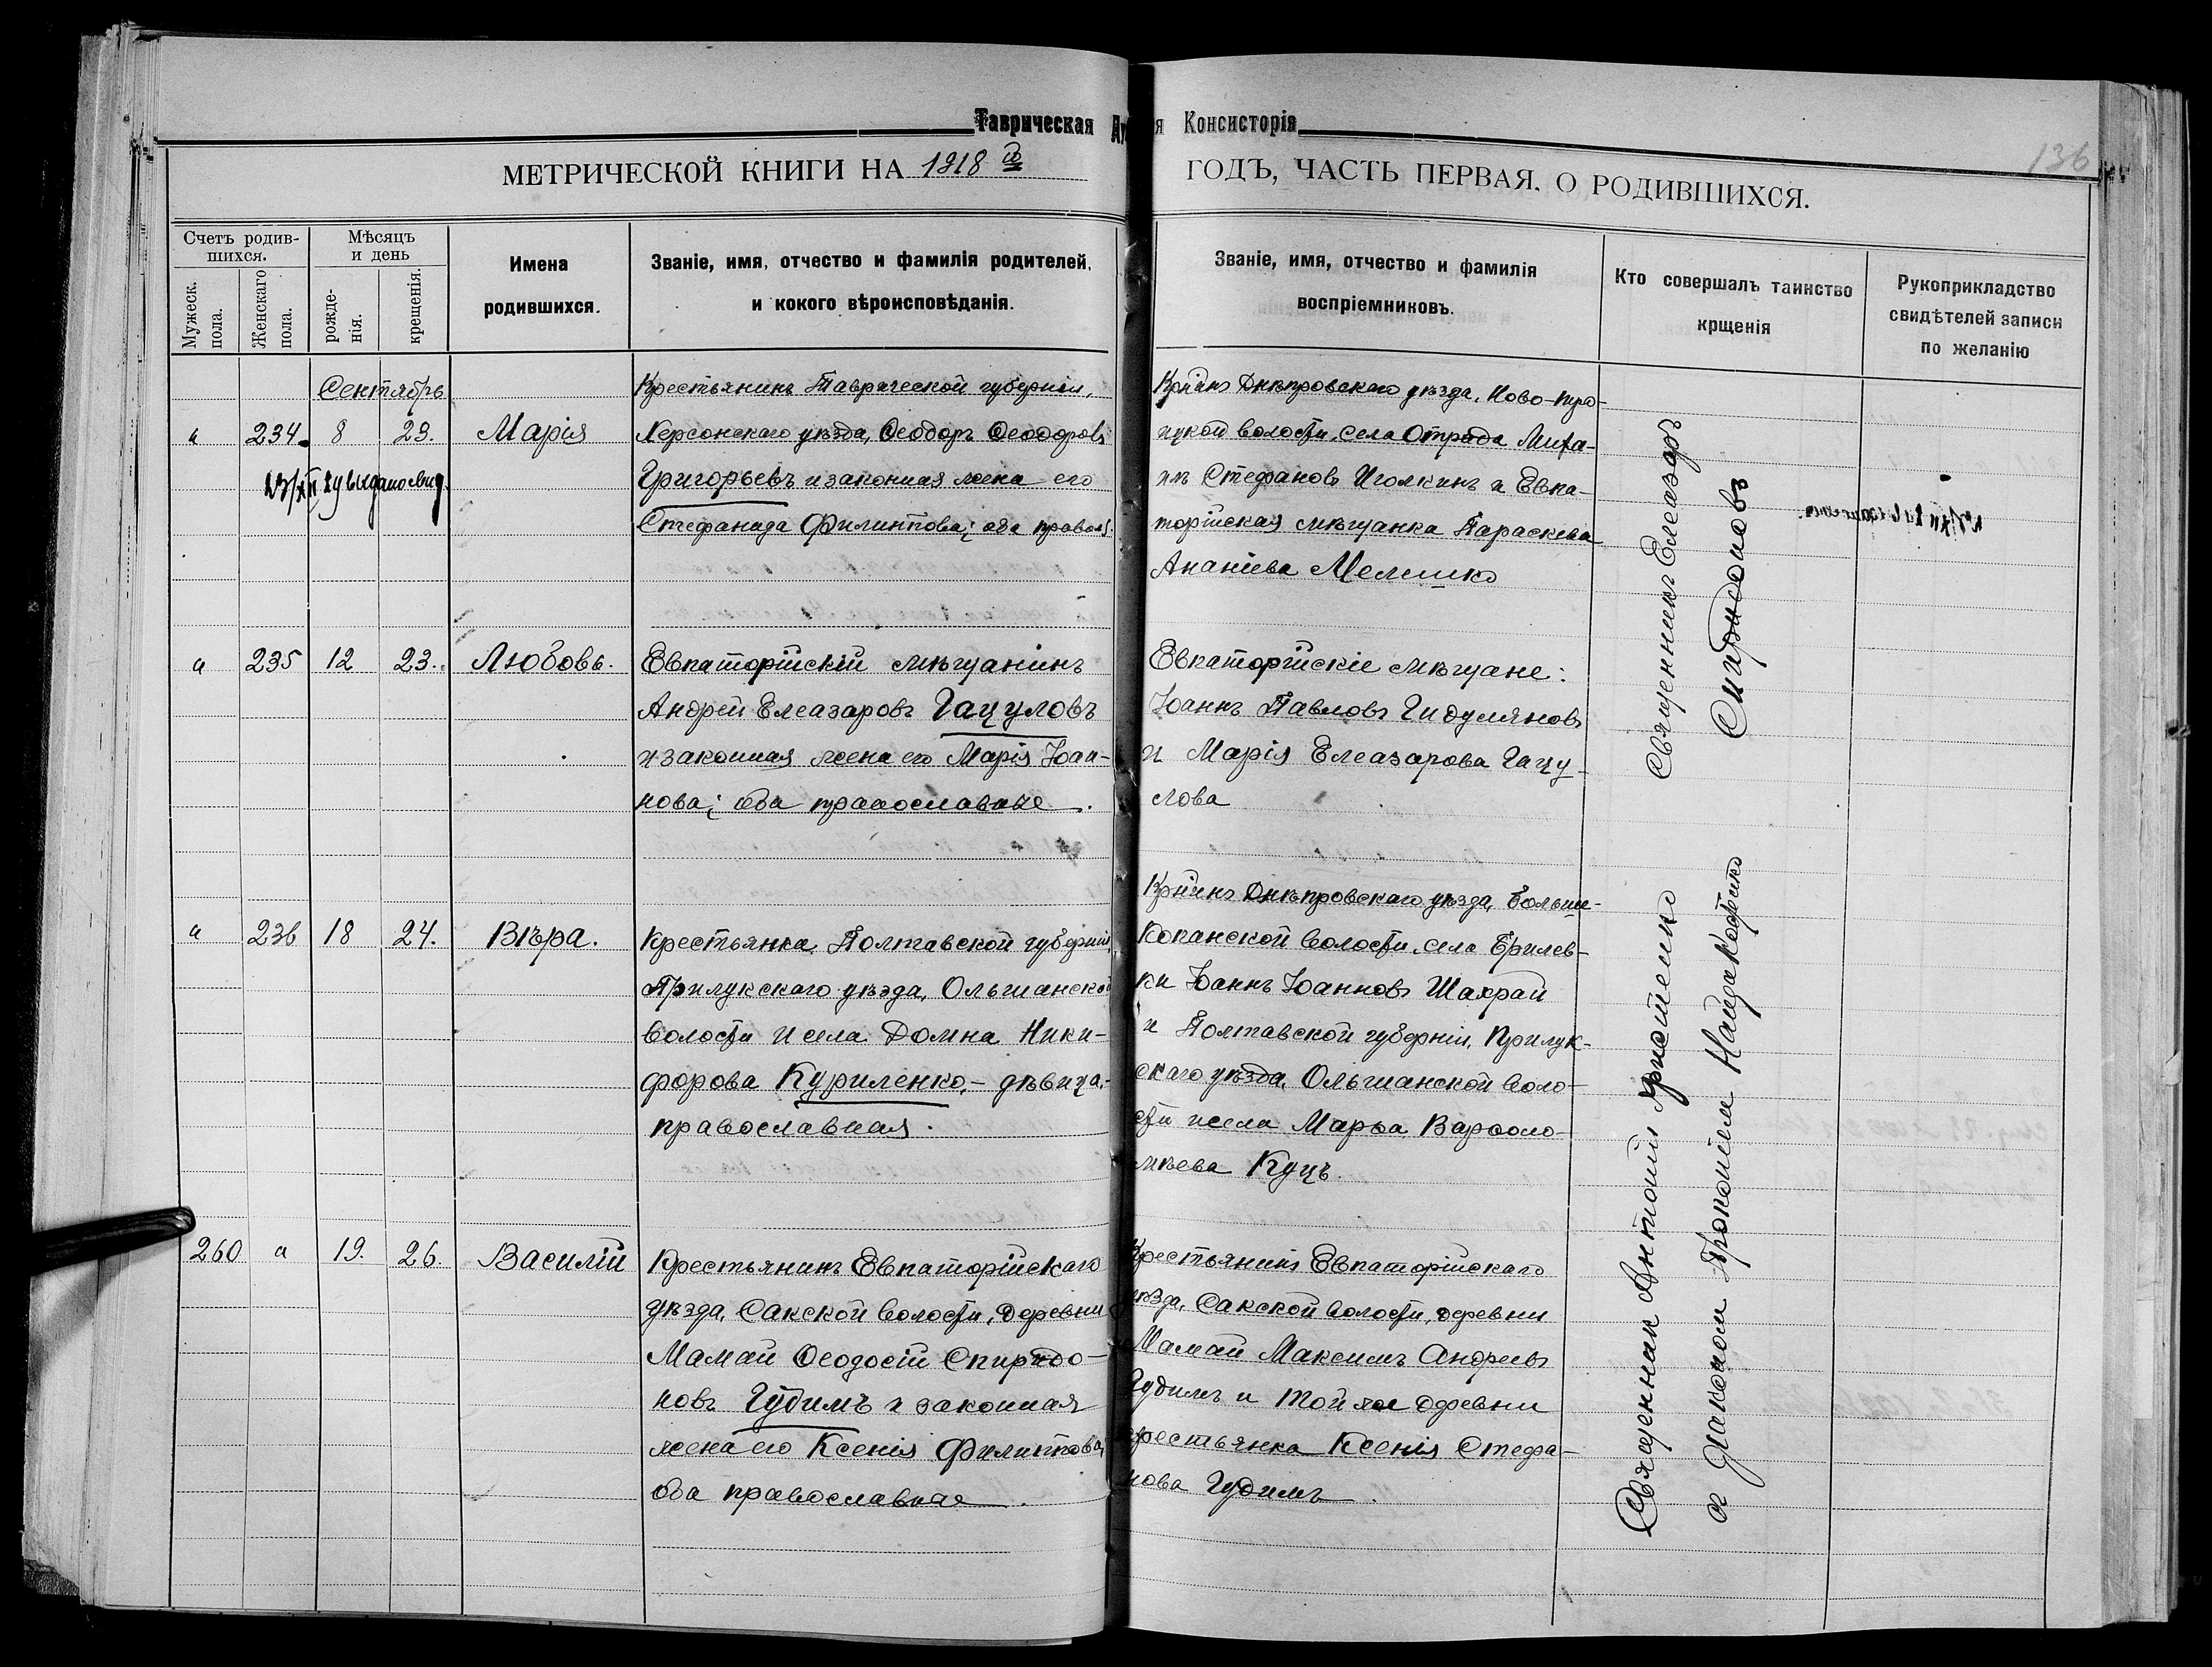 Таврическая
я Консисторія
136
МЕТРИЧЕСКОЙ КНИГИ НА 1918 й
ГОДЪ, ЧАСТЬ ПЕРВАЯ. О РОДИВШИХСЯ.
Счетъ родив-
шихся.
Мужеск.
пола.
Женскаго
пола.
Мѣсяцъ
и день
рожде-
нія.
крещенія.
Имена
родившихся.
Званіе, имя, отчество и фамилія родителей,
и кокого вѣроисповѣданія.
Званіе, имя, отчество и фамилія
воспріемниковъ.
Кто совершалъ таинство
крщенія
Рукоприкладство
свидѣтелей записи
по желанію
Сентябрь
и 234. 8 23. Марія
Крестьянинъ Таврической губерніи,
Херсонскаго уѣзда, Ѳеодоръ Ѳеодоровъ
Григорьевъ и законная жена его
Стефанида Филиппова; оба правосл.
Крнинъ Днѣпровскаго уѣзда, Ново-тро-
ицкой волости, села Отрада Миха-
илъ Стефановъ Иголкинъ и Евпа-
торійская мѣщанка Параскева
Ананіева Мелешко
выдано свид.
Священникъ Елеазаръ
Спиридоновъ
и 235 12 23. Любовь.
Евпаторійскій мѣщанинъ
Андрей Елеазаровъ Гацуловъ
и законная жена его Марія Іоан-
нова; оба православные.
Евпаторійскіе мѣщане:
Іоаннъ Павловъ Гидуляновъ
и Марія Елеазарова Гацу-
лова
и 236 18 24. Вѣра.
Крестьянка Полтавской губерніи,
Прилукскаго уѣзда, Ольшанской
волости и села Домна Ники-
форова Куриленко, - дѣвица, -
православная.
Крнинъ Днѣпровскаго уѣзда, Больше-
Копанской волости, села Брилев-
ки Іоаннъ Іоанновъ Шахрай
и Полтавской губерніи, Прилук-
скаго уѣзда, Ольшанской воло-
сти и села Марѳа Варѳоло-
мѣева Куцъ.
260 и 19. 26. Василій
Крестьянинъ Евпаторійскаго
уѣзда, Сакской волости, деревни
Мамай Ѳеодосій Спиридо-
новъ Гудимъ и законная
жена его Ксенія Филиппова,
оба православная.
Крестьянинъ Евпаторійскаго
уѣзда, Сакской волости, деревни
Мамай Максимъ Андреевъ
Гудимъ и той же деревни
крестьянка Ксенія Стефа-
нова Гудимъ.
Священник Антоній
и Діаконом Прокопіем